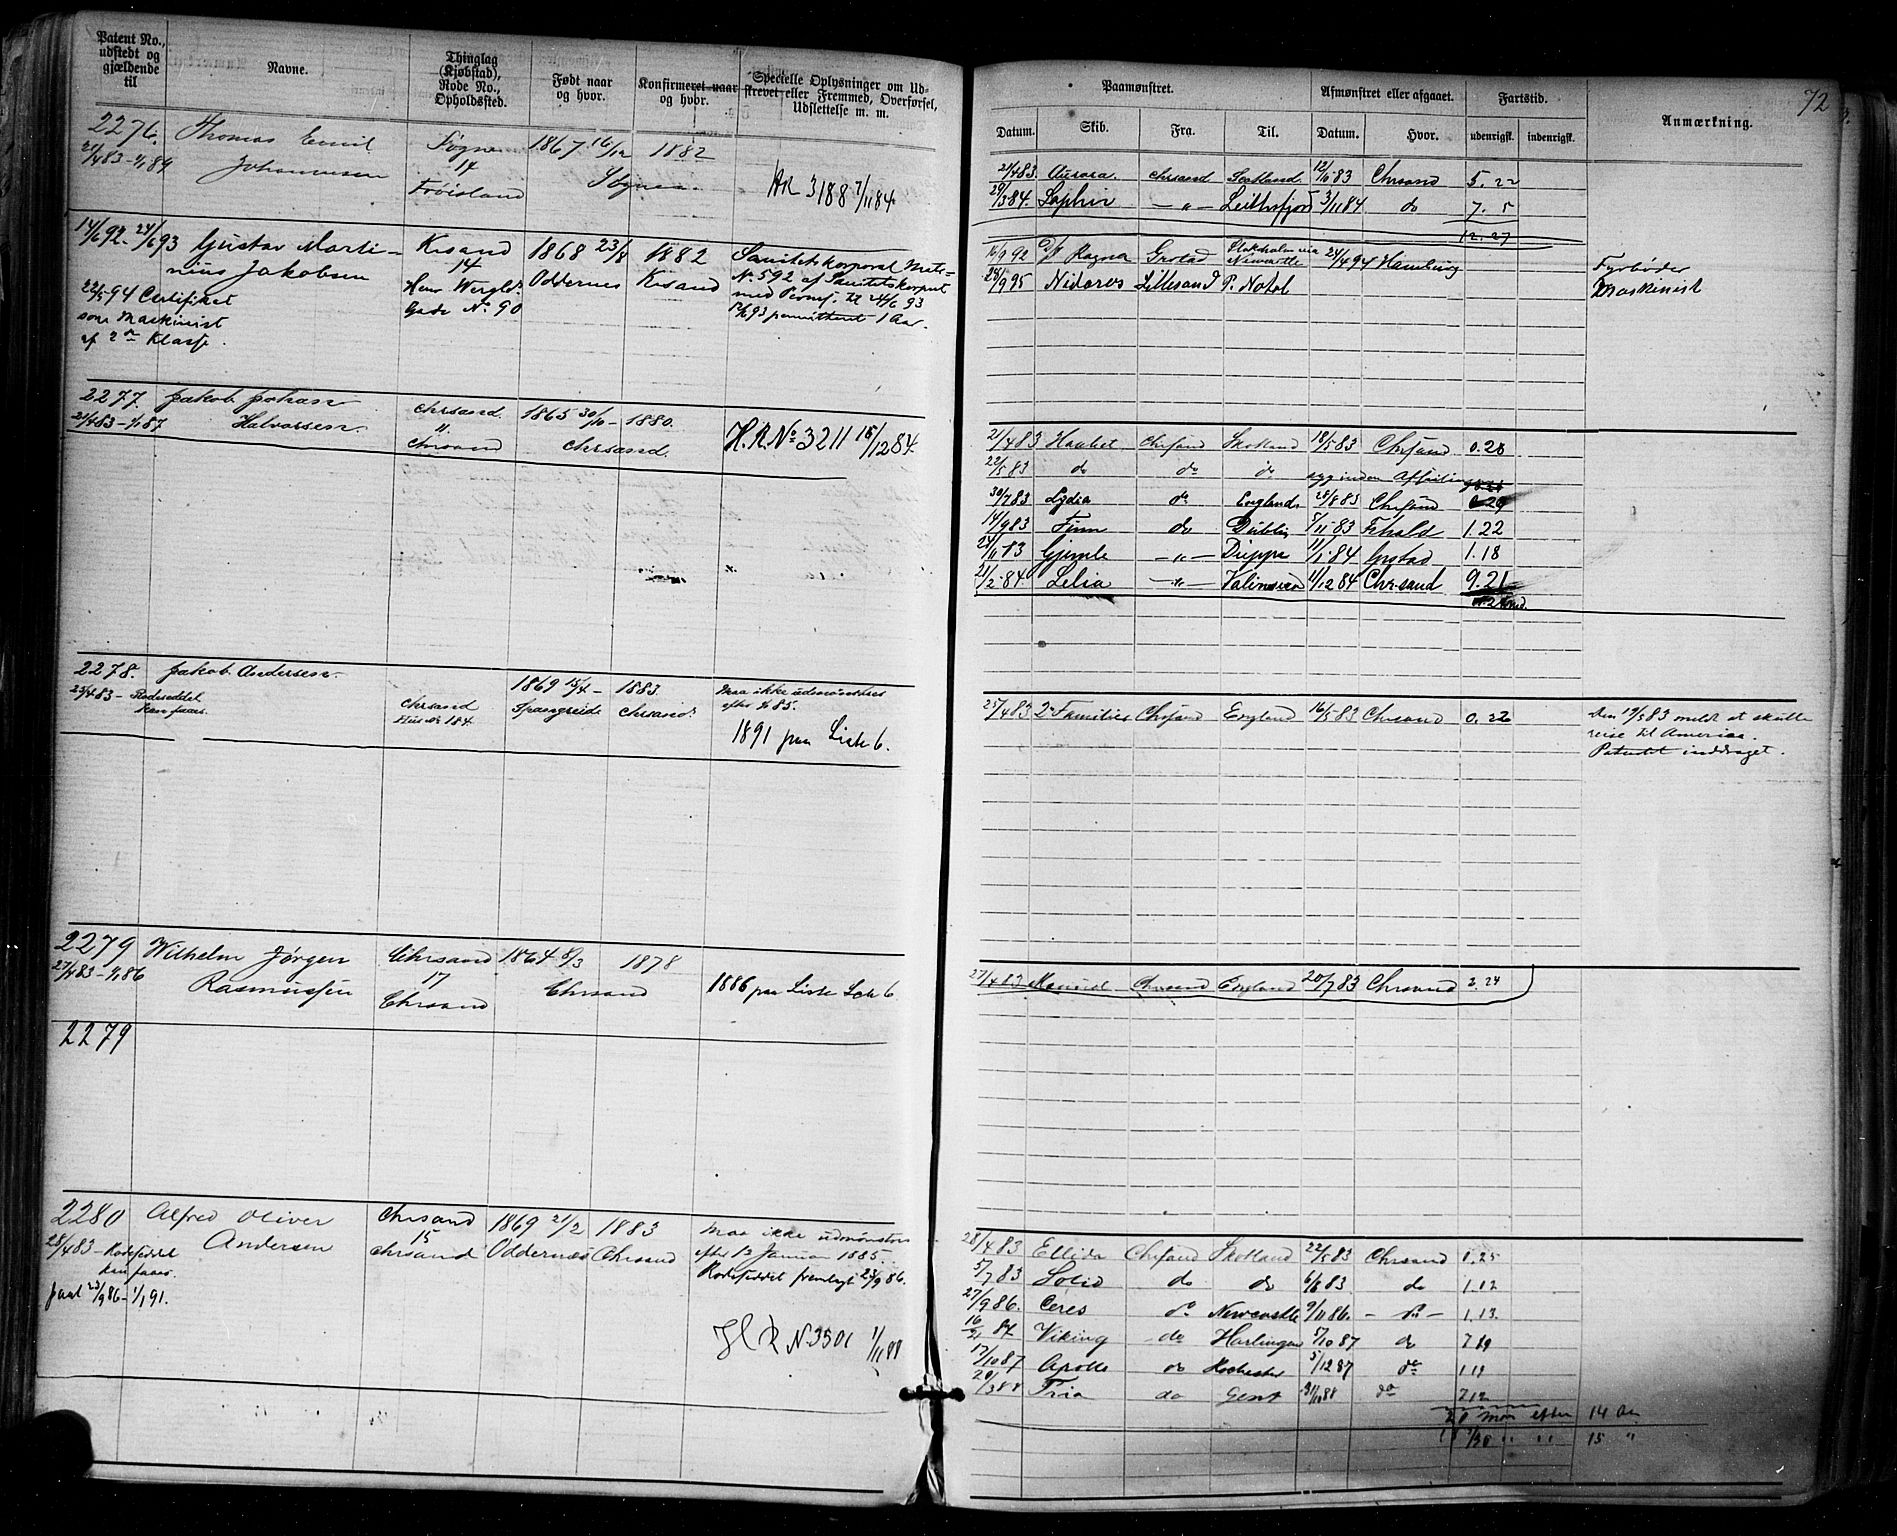 Patent No.,
udstedt og
gjældende
til
Navne.
Thinglag
(Kjøbstad),
Rode No.,
Opholdssted.
Født naar
og hvor.
Konfirmeret naar
og hvor.
Specielle Oplysninger om Ud-
skrevet eller Fremmed, Overførsel,
Udslettelse m. m.
2276. Thomas Emil Søgne 1867 16/12 1882
21/4 83 - 1/1 89 Johannesen 14 Søgne
HR 3188 7/11 84
14/6 92 - 24/6 93 Gustav Marti- Krsand 1868 23/8 1882 Sanitetskorporal
nius Jakobsen 14 Oddernes Krsand No 592 af Sanitetskorpset
22/5 94 Certifiket Gade No 90
som Maskinist permitteret 1 Aar.
af 2den Klasse.
2277. Jakob Johan Chrsand. 1865 30/10 - 1880.
21/4 83 - 1/1 87 Halvorsen. " Chrsand.
Chrsand H.R. No 3211 15/12 84
2278. Jakob Andersen. 1869 15/4 - 1883. Maa ikke udmønstres
25/4 83 - Rodeseddel Chrsand Spangreide Chrsand. efter 1/1 85.
Hus No 184. 1891 paa Liste 6.
2279 Wilhelm Jørgen Chrsand 1864 8/3 1878
27/4 83 - 1/1 86 Rasmussen 17 Chrsand 1886 paa Liste Litr 6
Chrsand
2279
2280 Alfred Oliver Chrsand 1869 21/2 1883 Maa ikke udmønstres
28/4 83 - Rodeseddel Andersen 15 efter 12 Januar 1885.
Chrsand Oddernæs Chrsand Rodeseddel fremlagt 23/9 86.
23/9 86 - 1/1 91.
H R N 3501 1/11 88
72
Paamønstret.
Afmønstret eller afgaaet.
Fartstid.
Anmærkning.
Datum. Skib. Fra. Til. Datum. Hvor. udenrigsk. indenrigsk.
21/4 83. Aurora Chrsand Skotland 12/10 83 Chrsand 5. 22
29/3 84. Saphir — „ — 3/11 84 do 7. 5
12. 27
16/9 92 D/S Ragna Grstad 24/4 94 Hamburg Fyrbøder
28/9 95 Nidaros Lillesand P. Natal Maskinist
21/4 83 Haabet Chrsand Skotland 18/5 83 Chrsand 0. 28
22/5 83 do do do
30/7 83 Lydia do England 28/8 83 Chrsand
14/9 83 Finn do Dublin 5/11 83 1. 22
24/11 83 Gjemle — „ — Dieppe 11/1 84 Grstad 1. 18
21/2 84 Lelia — „ — 11/12 84 Chr.sand 9. 21
25/4 83 2 Families Chrsand England 16/5 83 Chrsand 0. 22 Den 19/5 83 meldt at skulle
reise til Amerika.
Patentet inddraget.
27/4 83 Chrsand England 20/7 83 Chrsand 2. 24
28/4 83 Ellida Chrsand Skotland 22/5 83 Chrsand 0. 25
5/7 83 Solid do do 6/8 83 do 1. 12
27/9 86. Ceres do Newcastle 9/11 86. — „ — 1. 13.
Viking do Harlingen 5/10 87 do 7 19
17/10 87 Apollo do Rochester 5/12 87 do 1 19
20/3 88 Fria do Gent do 7 12
20 mdr efter 14 Aar
15 "